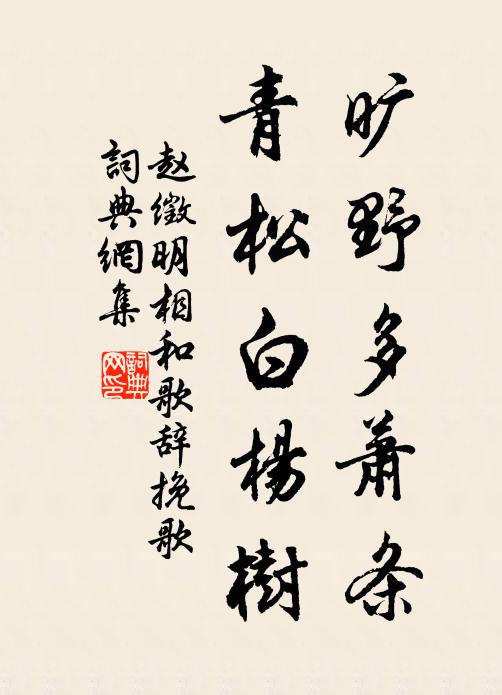 旷野多萧条
青松白杨樹
赵徵明相和歌辞挽歌
詞典網集
詞典
网印